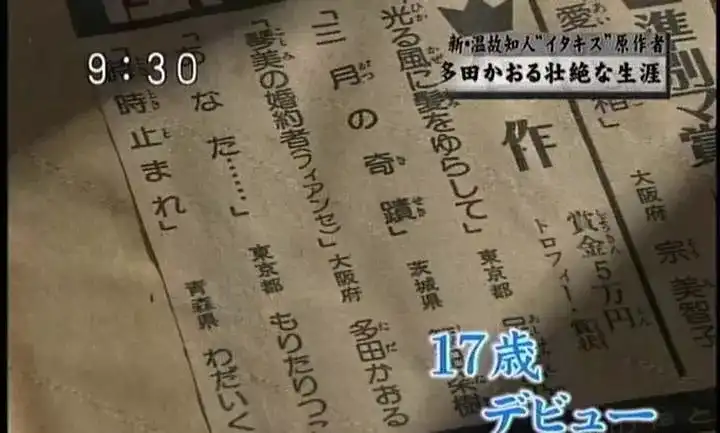 9:30
新・温故知人"イタキス"原作者
多田かおる壮絶な生涯
準別マ賞
大阪府 宗 美智子
賞金5万円
トロフィー・賞状
作
光る風に髪をゆらして」
東京都
「三月の奇蹟」
茨城県
「琴美の婚約者(フィアンセ)」
大阪府 多田かおる
「あなた……」
東京都 もりたりつこ
時止まれ」
青森県 わだいく
17歳
デビュー